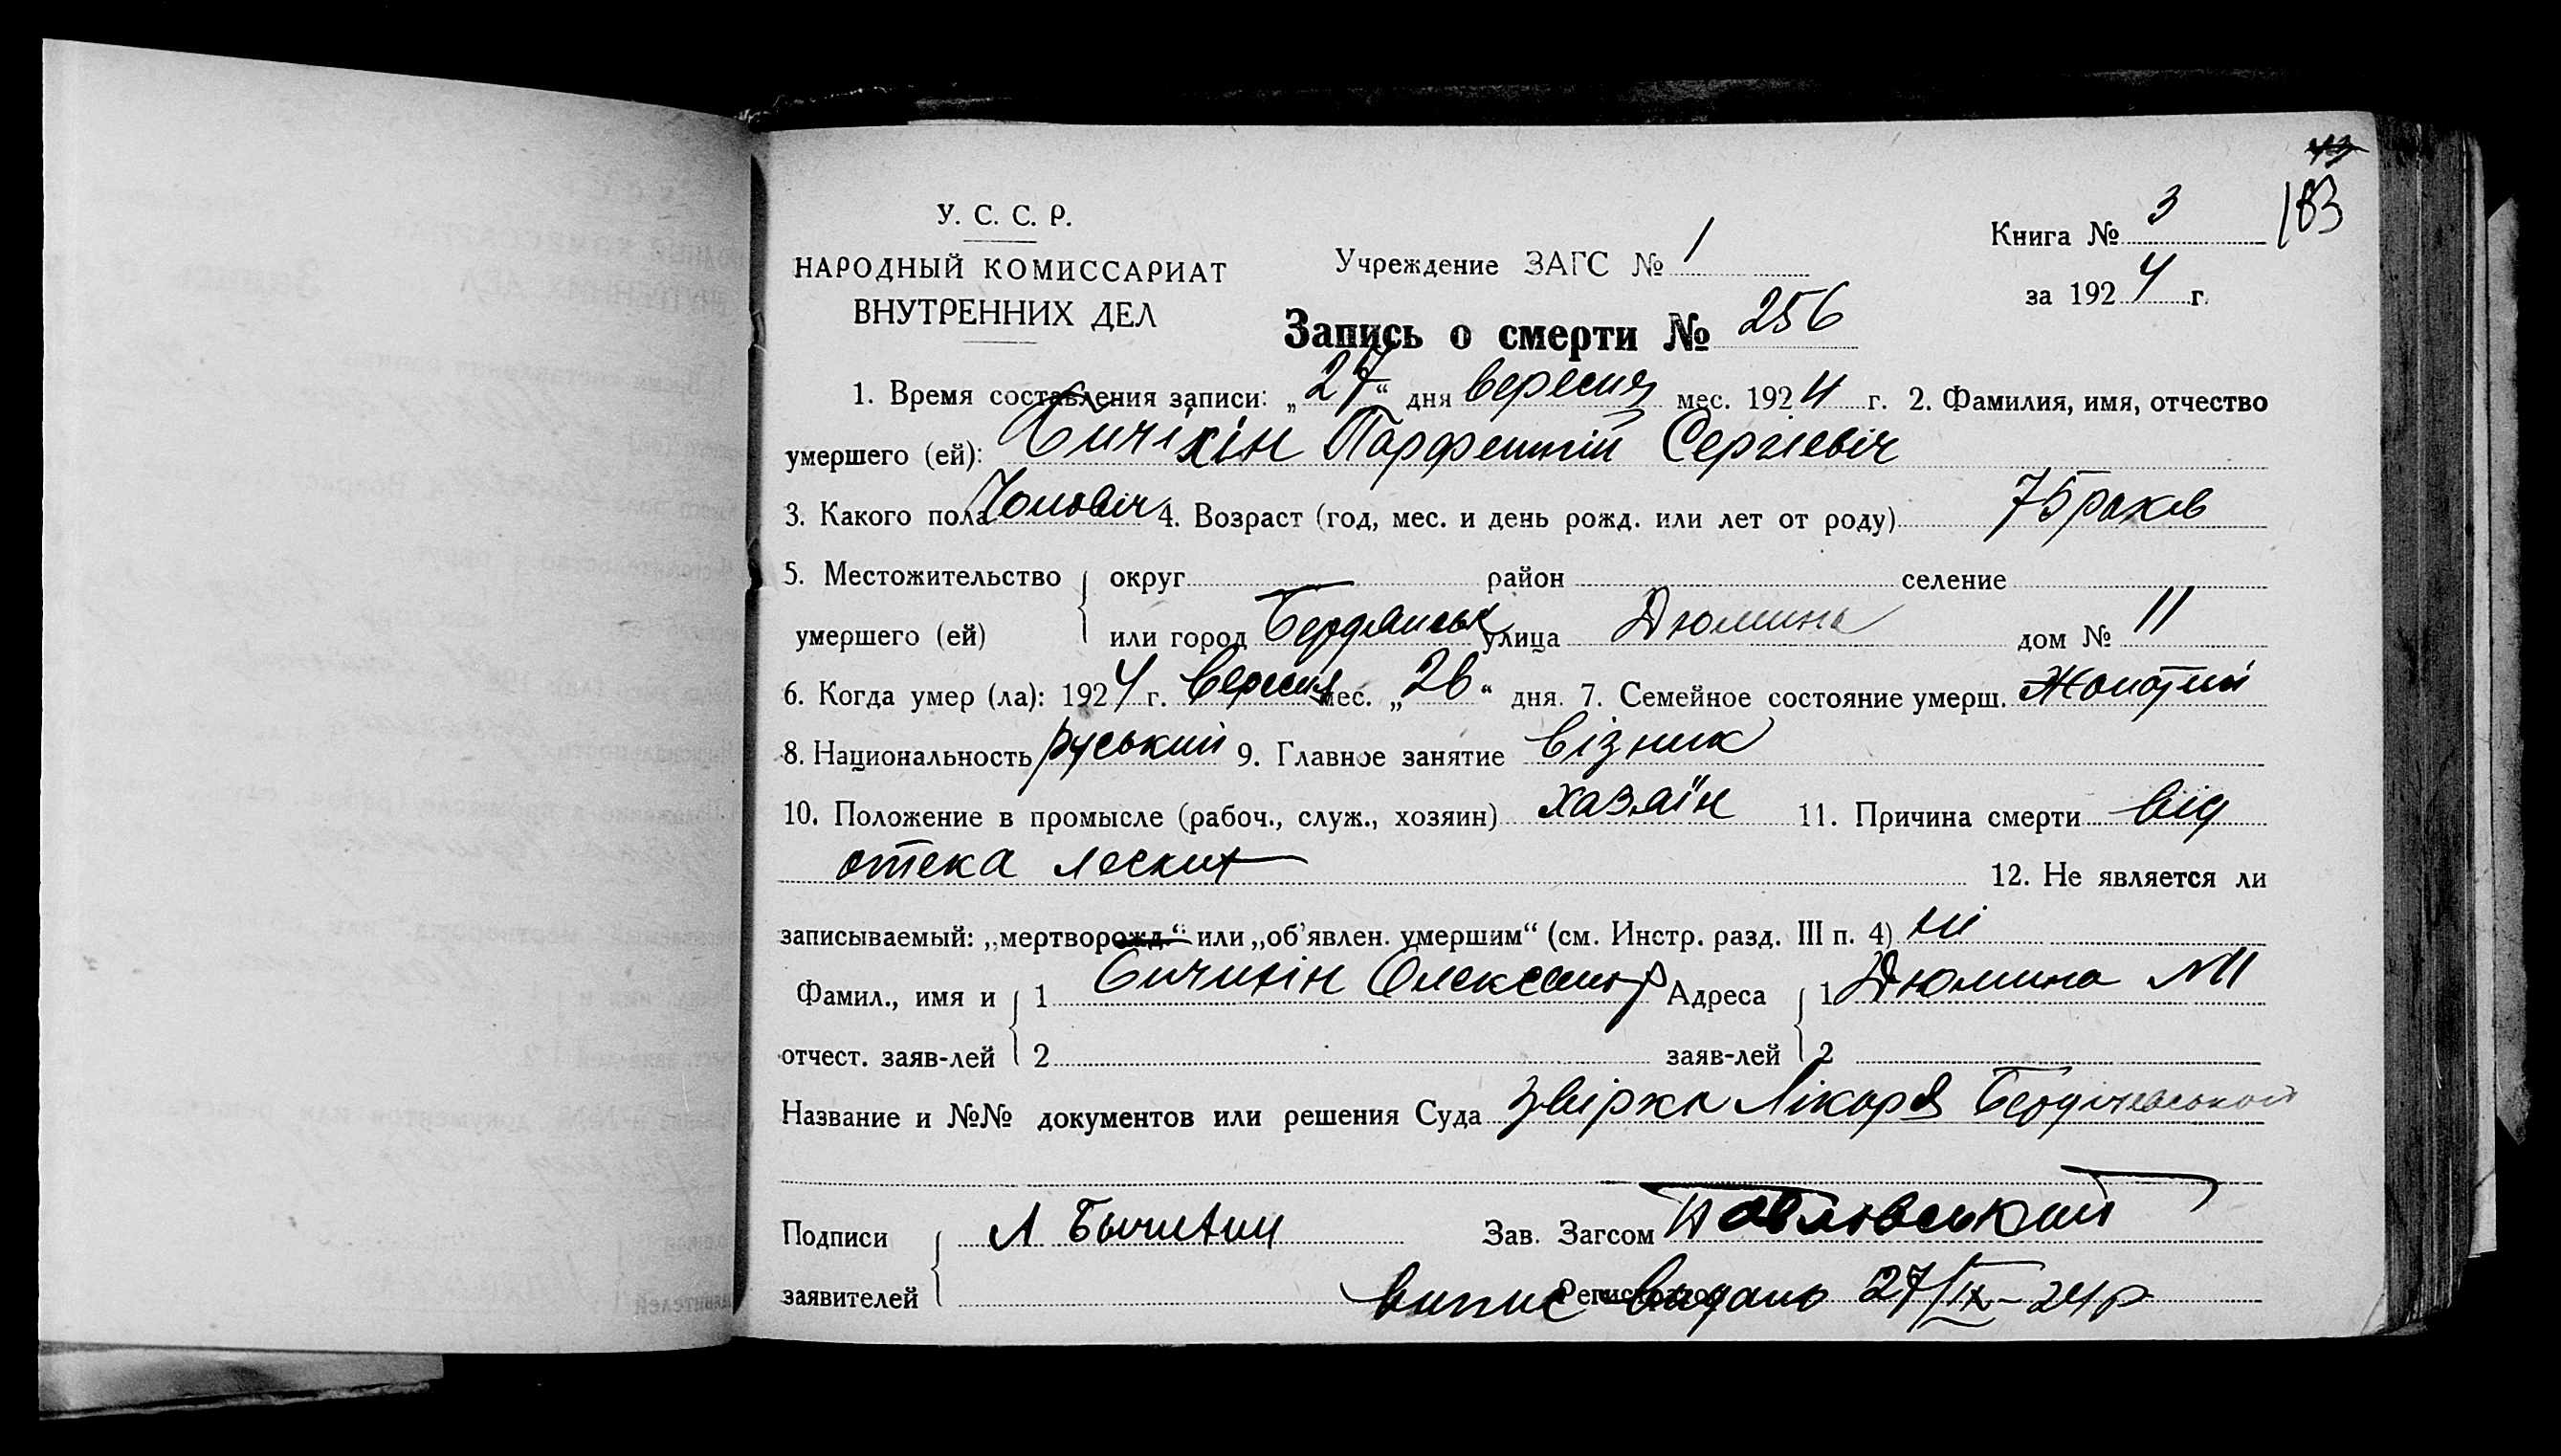 183
У. С. С. Р.
НАРОДНЫЙ КОМИССАРИАТ
ВНУТРЕННИХ ДЕЛ
Учреждение ЗАГС № 1
Книга № 3
за 1924 г.
Запись о смерти № 256
1. Время составления записи: „27“ дня вересня мес. 1924 г. 2. Фамилия, имя, отчество
умершего (ей): Бичіхін Парфентій Сергіевіч
3. Какого пола Чоловіч 4. Возраст (год, мес. и день рожд. или лет от роду) 75 років
5. Местожительство округ район селение
умершего (ей) или город Бердянськ улица Дюмина дом № 11
6. Когда умер (ла): 1924 г. вересня мес. „26“ дня. 7. Семейное состояние умерш. Жонатий
8. Национальность руський 9. Главное занятие візник
10. Положение в промысле (рабоч., служ., хозяин) хазяїн 11. Причина смерти від
отека легких 12. Не является ли
записываемый: „мертворожд.“ или „об'явлен. умершим“ (см. Инстр. разд. III п. 4) ні
Фамил., имя и 1 Бичихін Олександр Адреса 1 Дюмина №11
отчест. заяв-лей 2 заяв-лей 2
Название и №№ документов или решения Суда Лікаря
Подписи А Бычихин Зав. Загсом Павловський
заявителей Регистратор
випис видано 27/IX-24р